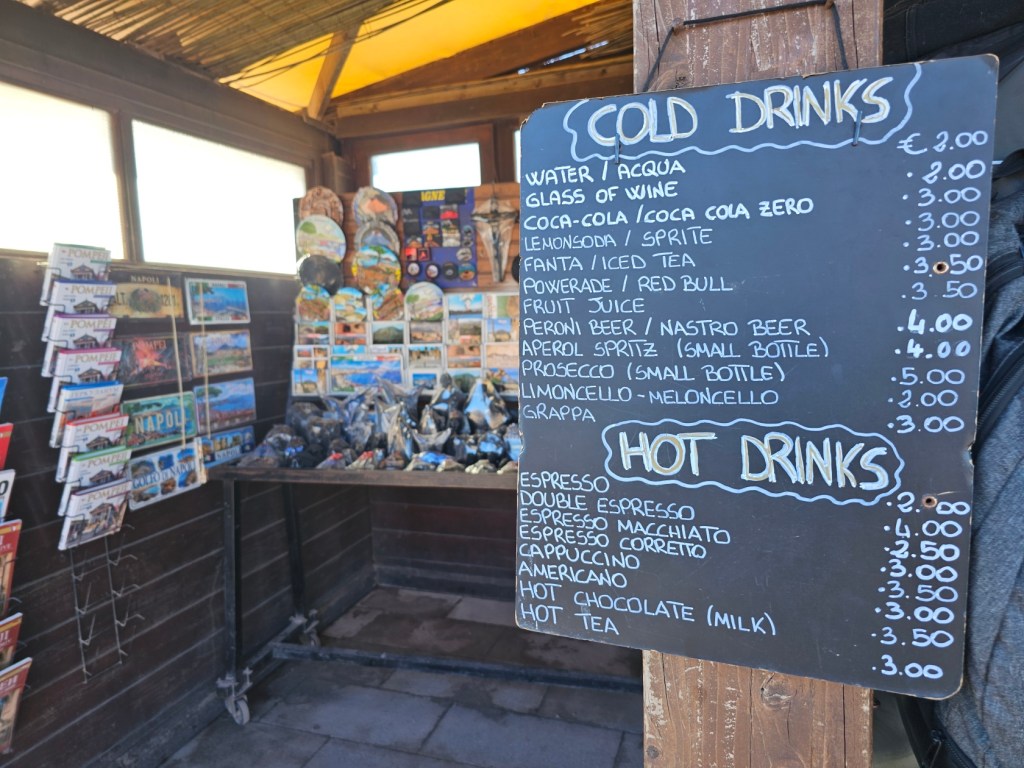 COLD DRINKS
WATER / ACQUA € 2.00
GLASS OF WINE .2.00
COCA-COLA / COCA COLA ZERO .3.00
LEMONSODA / SPRITE .3.00
FANTA / ICED TEA .3.00
POWERADE / RED BULL .3.50
FRUIT JUICE .3.50
PERONI BEER / NASTRO BEER .4.00
APEROL SPRITZ (SMALL BOTTLE) .4.00
PROSECCO (SMALL BOTTLE) .5.00
LIMONCELLO - MELONCELLO .2.00
GRAPPA .3.00
HOT DRINKS
ESPRESSO .2.00
DOUBLE ESPRESSO .4.00
ESPRESSO MACCHIATO .2.50
ESPRESSO CORRETTO .3.00
CAPPUCCINO .3.50
AMERICANO .3.00
HOT CHOCOLATE (MILK) .3.50
HOT TEA .3.00
IGNE
POMPEI
POMPEI
POMPEI
POMPEI
POMPEI
POMPEI
NAPOLI
NAPOLI
NAPOLI